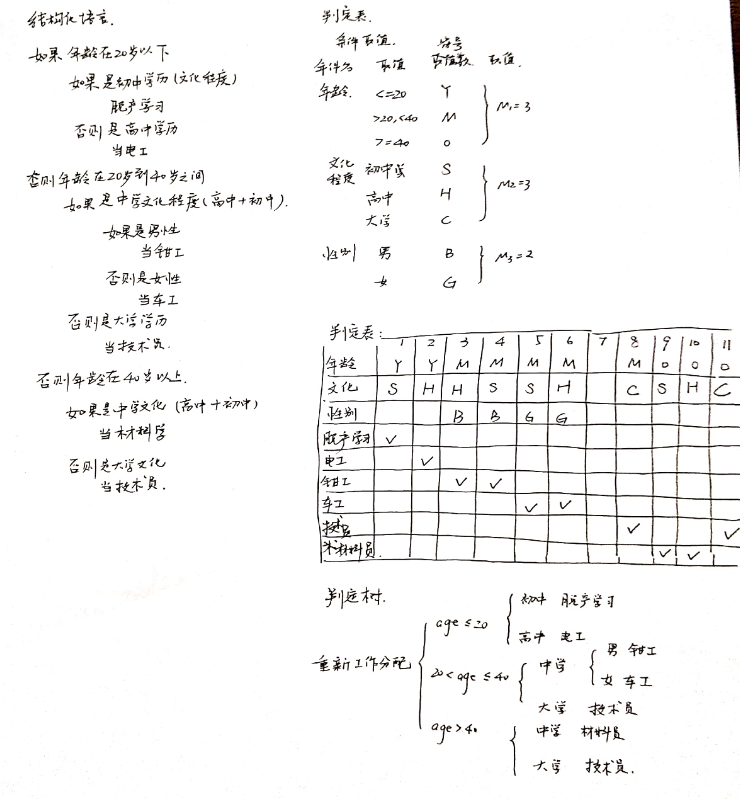 结构化语言.
如果 年龄在20岁以下
如果是初中学历(文化程度)
脱产学习
否则是高中学历
当电工
否则年龄在20岁到40岁之间
如果是中学文化程度(高中+初中).
如果是男性
当钳工
否则是女性
当车工
否则是大学学历
当技术员.
否则年龄在40岁以上.
如果是中学文化 (高中+初中)
当材料学
否则是大学文化
当技术员.
判定表.
条件取值. 符号
条件名 取值 取值数. 取值.
年龄. <=20 Y
>20,<40 M M₁=3
>=40 O
文化程度 初中 S
高中 H M₂=3
大学 C
性别 男 B M₃=2
女 G
判定表:
1 2 3 4 5 6 7 8 9 10 11
年龄 Y Y M M M M M O O O
文化 S H H S S H C S H C
性别 B B G G
脱产学习 ✓
电工 ✓
钳工 ✓ ✓
车工 ✓ ✓
技术员 ✓ ✓
材料员. ✓ ✓
判定树.
重新工作分配
age ≤ 20
初中 脱产学习
高中 电工
20 < age ≤ 40
中学
男 钳工
女 车工
大学 技术员
age > 40
中学 材料员
大学 技术员.